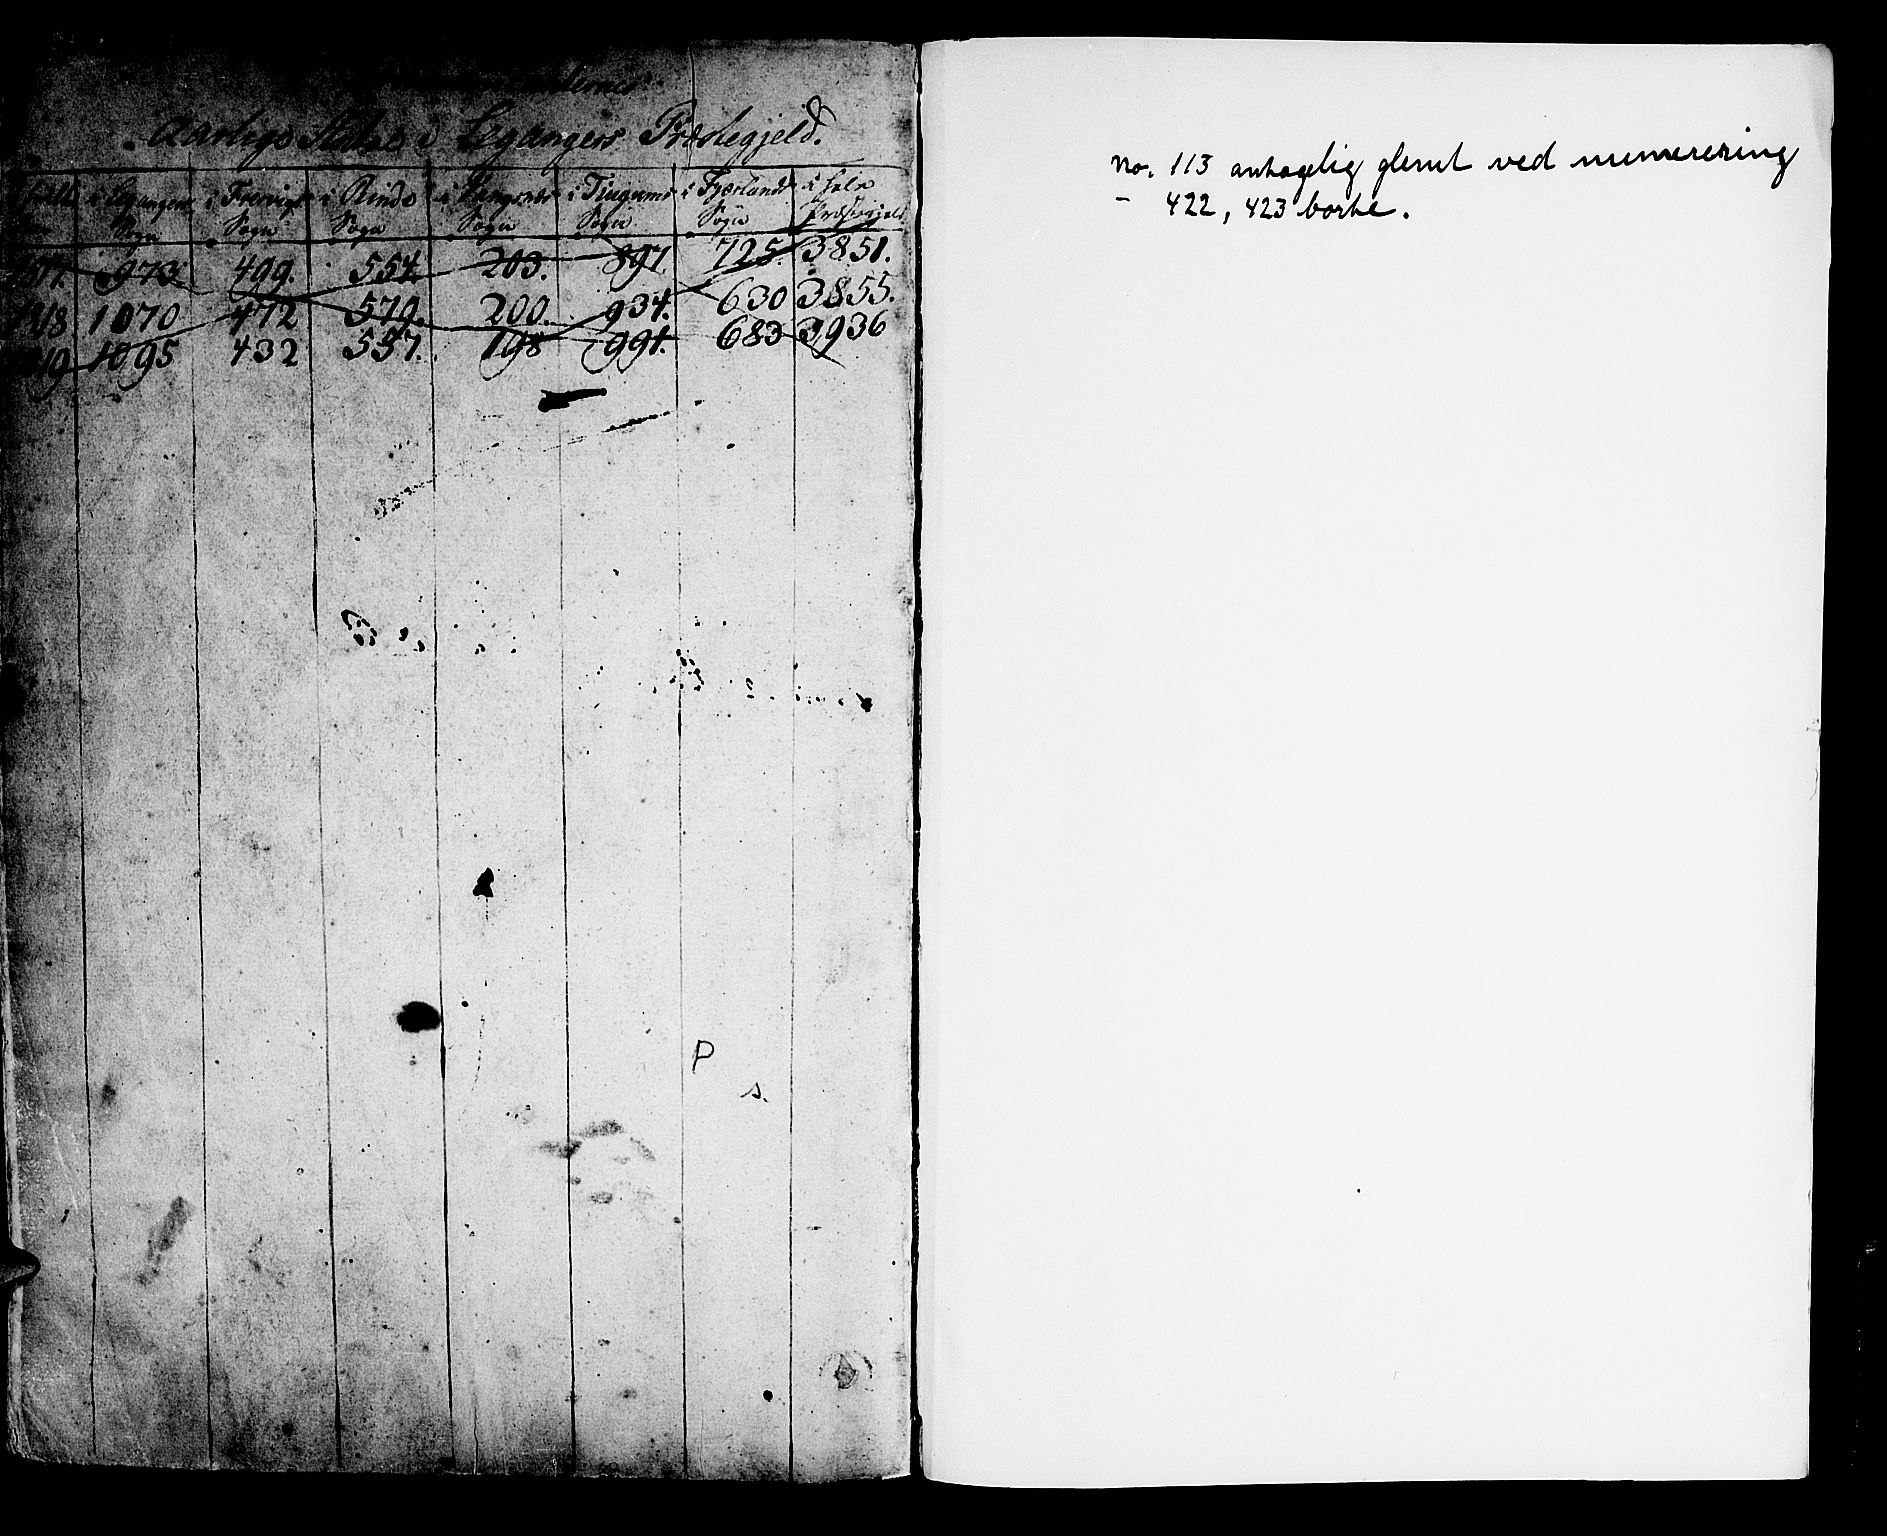 Aarlige Støe i Legangers Præstegjeld.
i Legangers Sogn | i Frervigs Sogn | i Rinde Sogn | i Vangsnæs Sogn | i Tiugums Sogn | i Fjærlands Sogn | i hele Præstegjeld
1817. 973 499. 554 203. 897. 725. 3851.
1818 1070 472 579. 200. 934. 630 3855.
1819 1095 432 537. 198 991. 683 3936
P
s.
No. 113 antagelig glemt ved numerering
- 422, 423 borte.